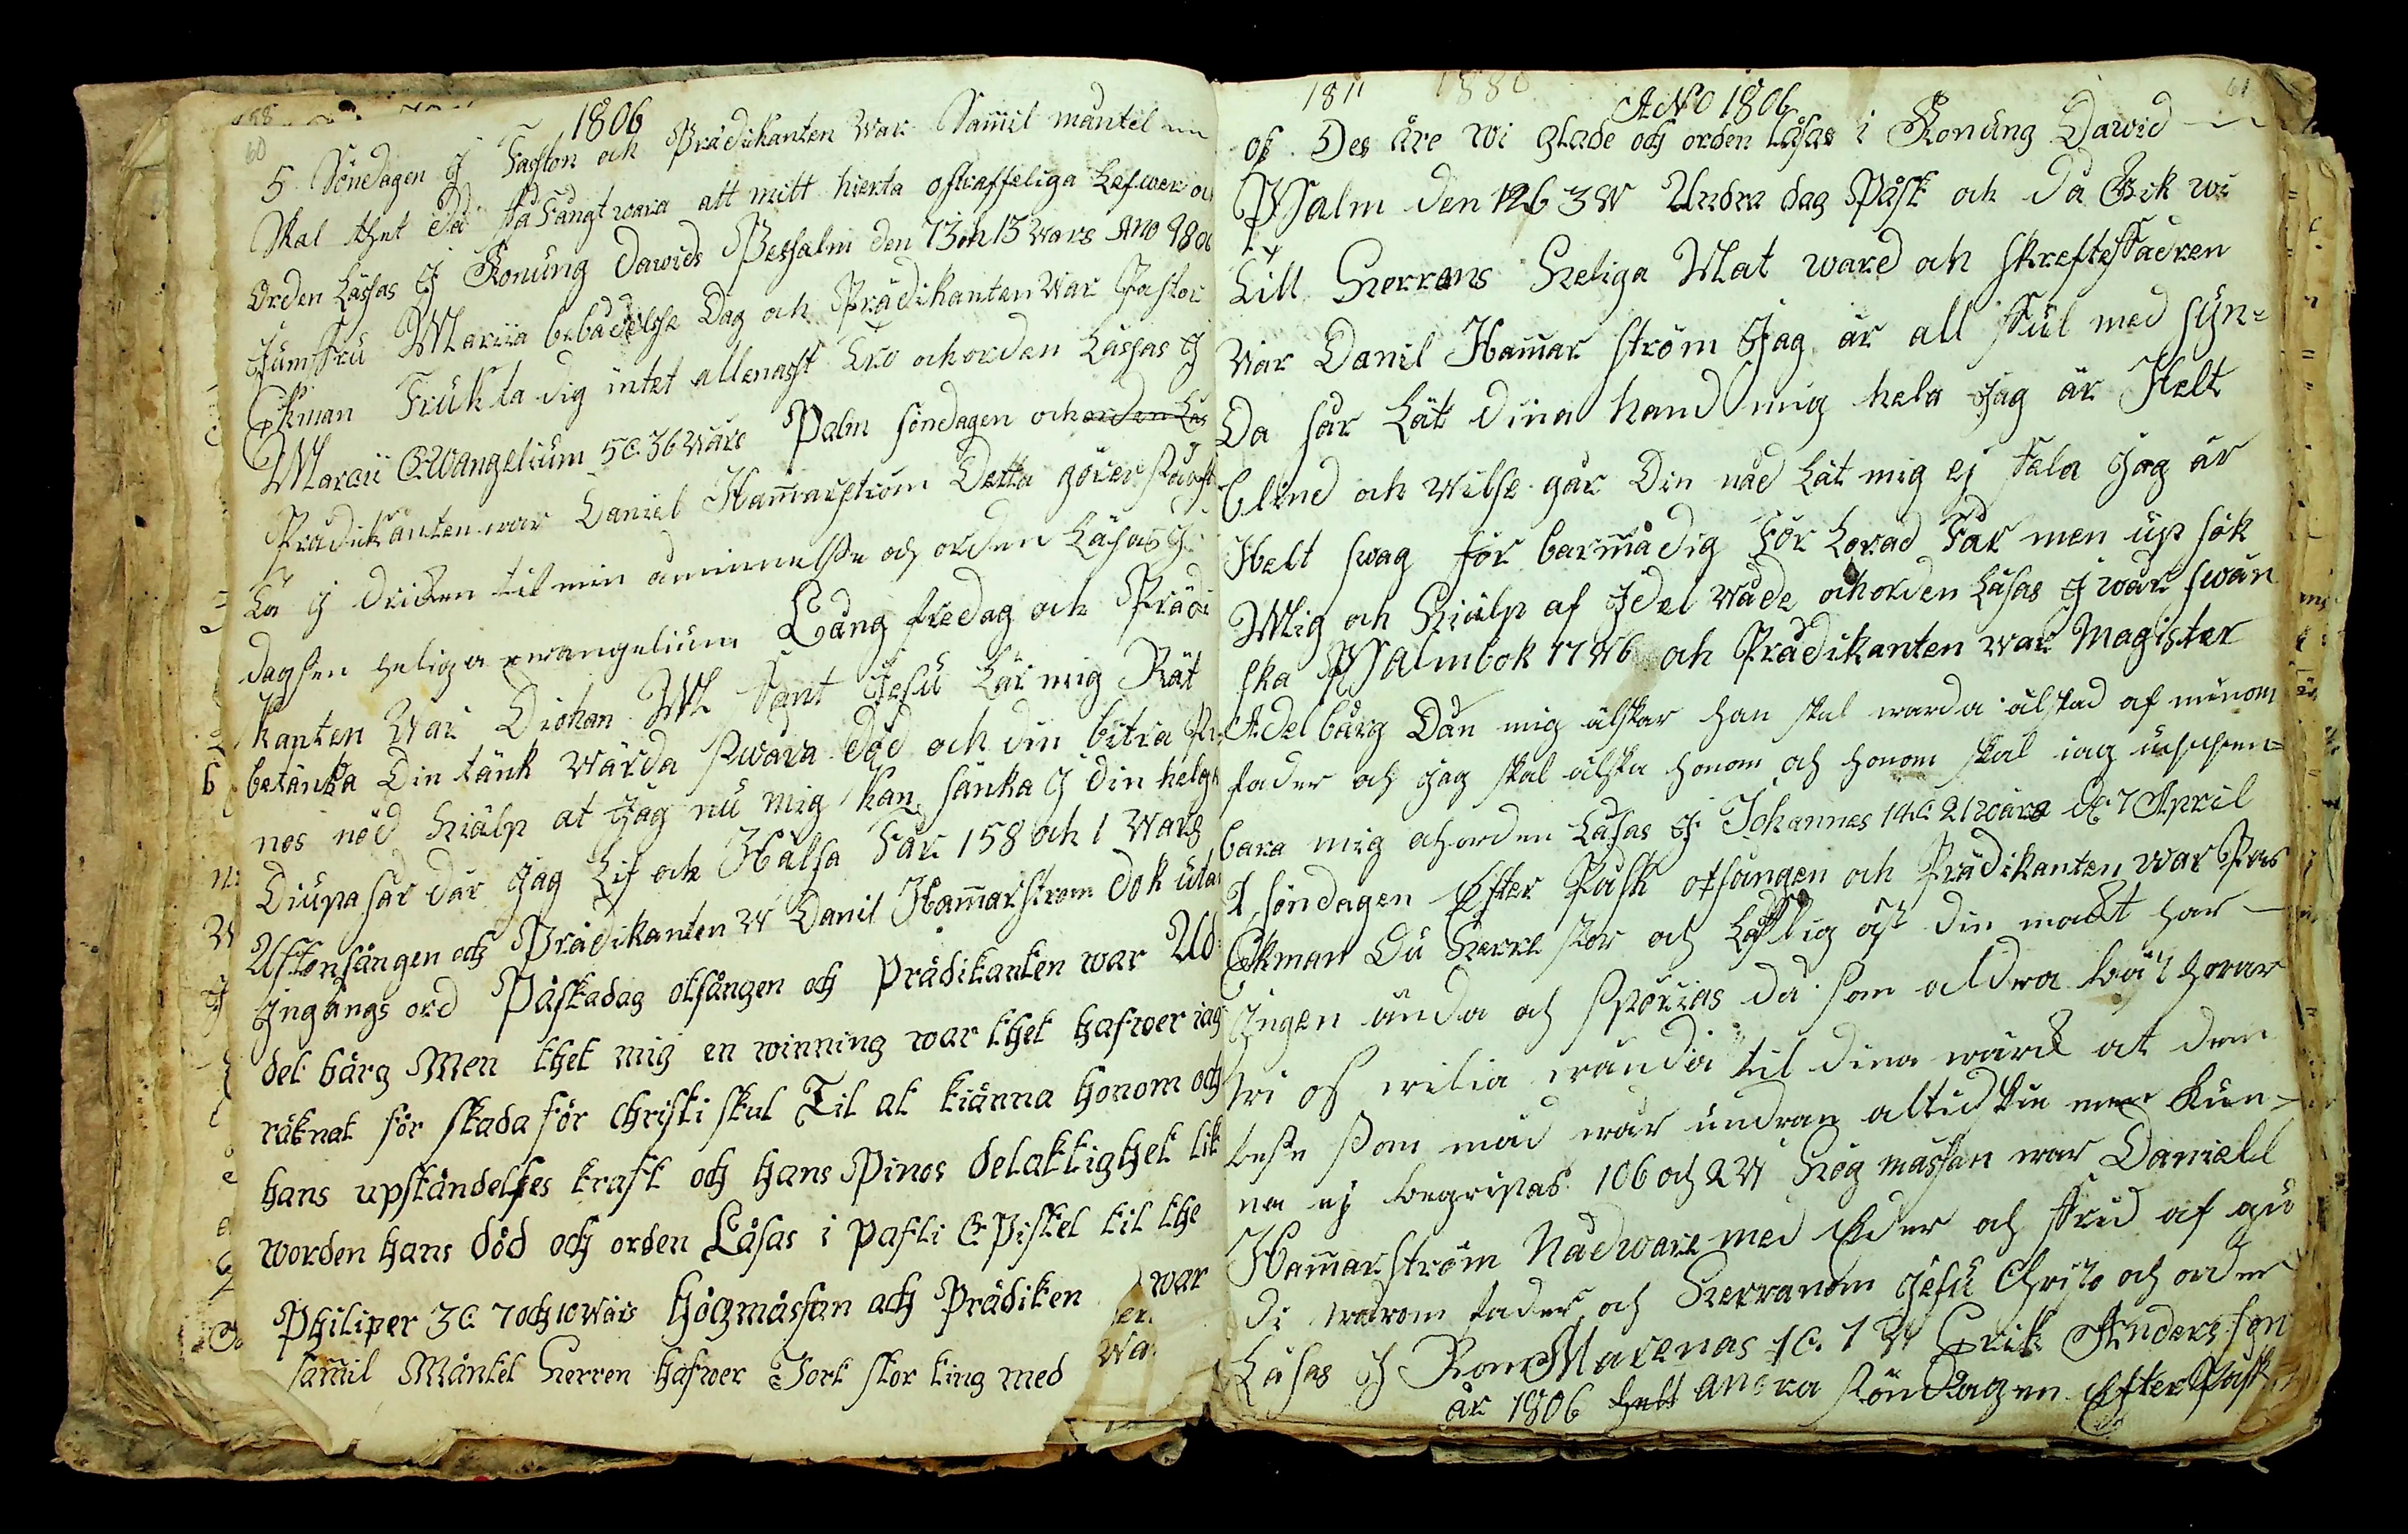 60
1806
5 Söndagen J Faston och Prädikanten War Samil mantel
Skal thet då få Fångt wara att mitt hierta ostraffeliga Lefwer oc
Orden Lässas J Konung Dawids Pessalm den 73 och 13 Wars Ano 1806
Jumfru Mariia bebådelsse Dag och Prädikanten War Pastor
Ekman Frukta dig intet allenast Tro och orden Lässas J
Marcii Ewangelium 5 C. 36 Wärs Palm söndagen och orden Läs
Prädikanten war Daniel Hammarström Detta görer så ofta
Ta J dricken til min åminnelsse och orden Läsas J
dagsen heliga ewangelium Lång fredag och Prädi
kanten War Diohan M Sant Jesu Lär mig Rät
betänka Din tänk wärda swåra död och din bitra Pi
nos nöd hiälp at Jag nu mig kan sänka J din helga
Diupa sår där Jag Lif och Hälsa Får 158 och 1 Wars
Aftonsången och Prädikanten W Danil Hammarström dok utan
Jngångs ord Påskadag otsången och Prädikanten war Ad
del bärg Men thet mig en winning war thet hafwer iag
räknat för skada för Christi skul Til at kiänna honom och
hans upståndelses kraft och hans Pinos delaktighet lik
worden hans död och orden Läsas i Pafli E Pistel til the
Philiper 3 C 7 och 10 Wärs högmässan och Prädiken war
samil Mäntel Herren hafwer Jort stor ting med
1811 1880
61
ANO 1806
os Des äre wi glade och orden Läsas i Konung Dawid
Psalm den 126 3 W Andra dag Påsk och då Gik wi
till Herrans Heliga Nat ward och skrefte faderen
War Danil Hammar ström Jag är all full med syn=
Da sår Lät dina hand mig hela Jag är Helt
blind och vilse går Din nåd Lät mig ej fela Jag är
Helt swag för barma dig För Lorad Får men up sök
Mig och Hiälp af Jdel nåde och orden Läsas J wår swän
ska Psalmbok 77 W 6 och Prädikanten war Magister
Adelbärg Dän mig älskar han skal warda älskad af minom
fader och Jag skal älska honom och honom skal iag uppen=
bara mig och orden Läsas J Johannes 14 C 21 wärs D 7 April
1 söndagen Efter Påsk otsången och Prädikanten war Pas
Ekman Du Herre stor och Loflig äst din makt har
Jngen ända och spörias då som aldra bäst hwar
wi os wilia wända til dina wärk at dem
bese som med wår undran altid ske men kun=
na ej begripas 106 och 2 W Hög mässan war Daniell
Hammarström Nåd ware med Eder och frid af gu
di wårom fader och Herranom Jesu Christo och orden
Läsas J Rom Marenas 1 C. 7 W Erik Anders son
år 1806 andra söndagen Efter Påsk